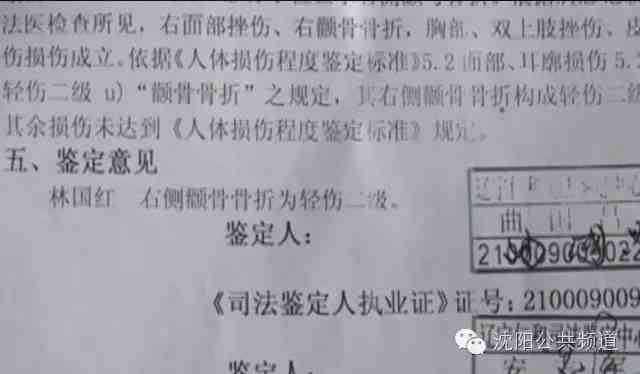 法医检查所见，右面部挫伤、右颧骨骨折，胸部、双上肢挫伤、皮
伤损伤成立。依据《人体损伤程度鉴定标准》5.2面部、耳廓损伤5.2
轻伤二级 u)“颧骨骨折”之规定，其右侧颧骨骨折构成轻伤二级
其余损伤未达到《人体损伤程度鉴定标准》规定。
五、鉴定意见
林国红 右侧颧骨骨折为轻伤二级。
鉴定人：
《司法鉴定人执业证》证号：210009009
沈阳公共频道
鉴定人：